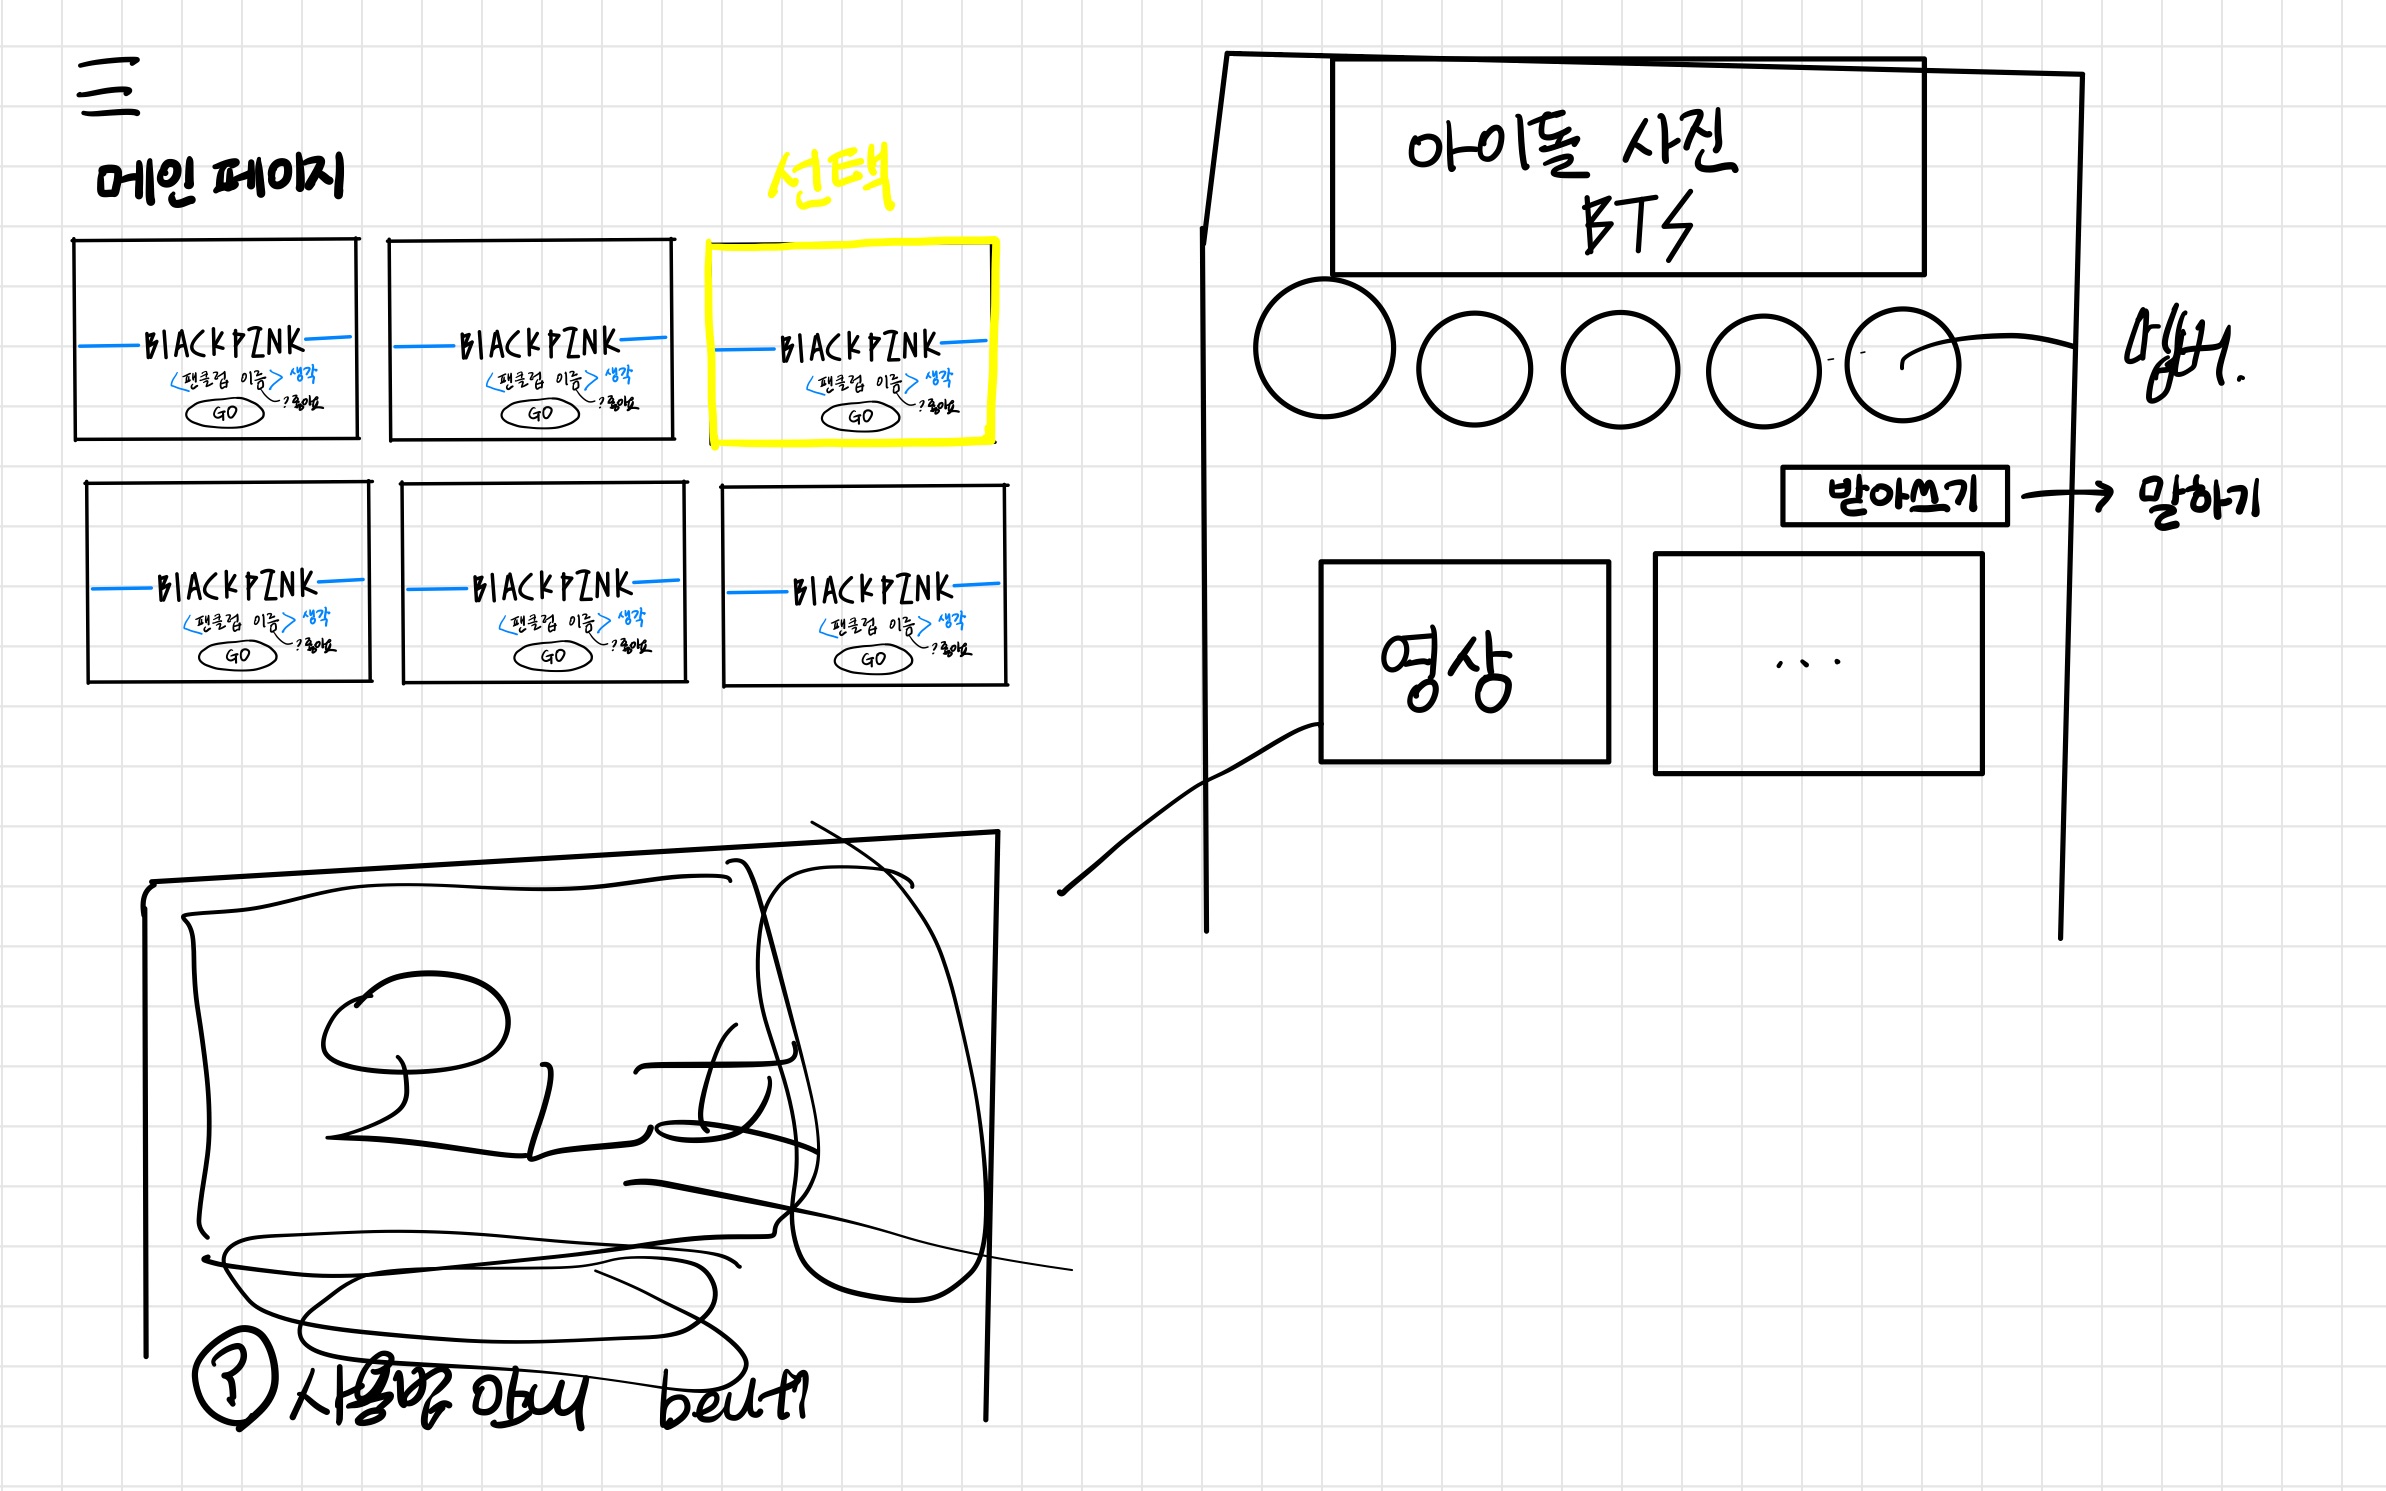 메인 페이지
선택
BlACKPINK
팬클럽 이름 생각
?좋아요
GO
BlACKPINK
팬클럽 이름 생각
?좋아요
GO
BlACKPINK
팬클럽 이름 생각
?좋아요
GO
BlACKPINK
팬클럽 이름 생각
?좋아요
GO
BlACKPINK
팬클럽 이름 생각
?좋아요
GO
BlACKPINK
팬클럽 이름 생각
?좋아요
GO
아이돌 사진
BTS
멤버.
받아쓰기 → 말하기
영상
...
? 사용법 안내